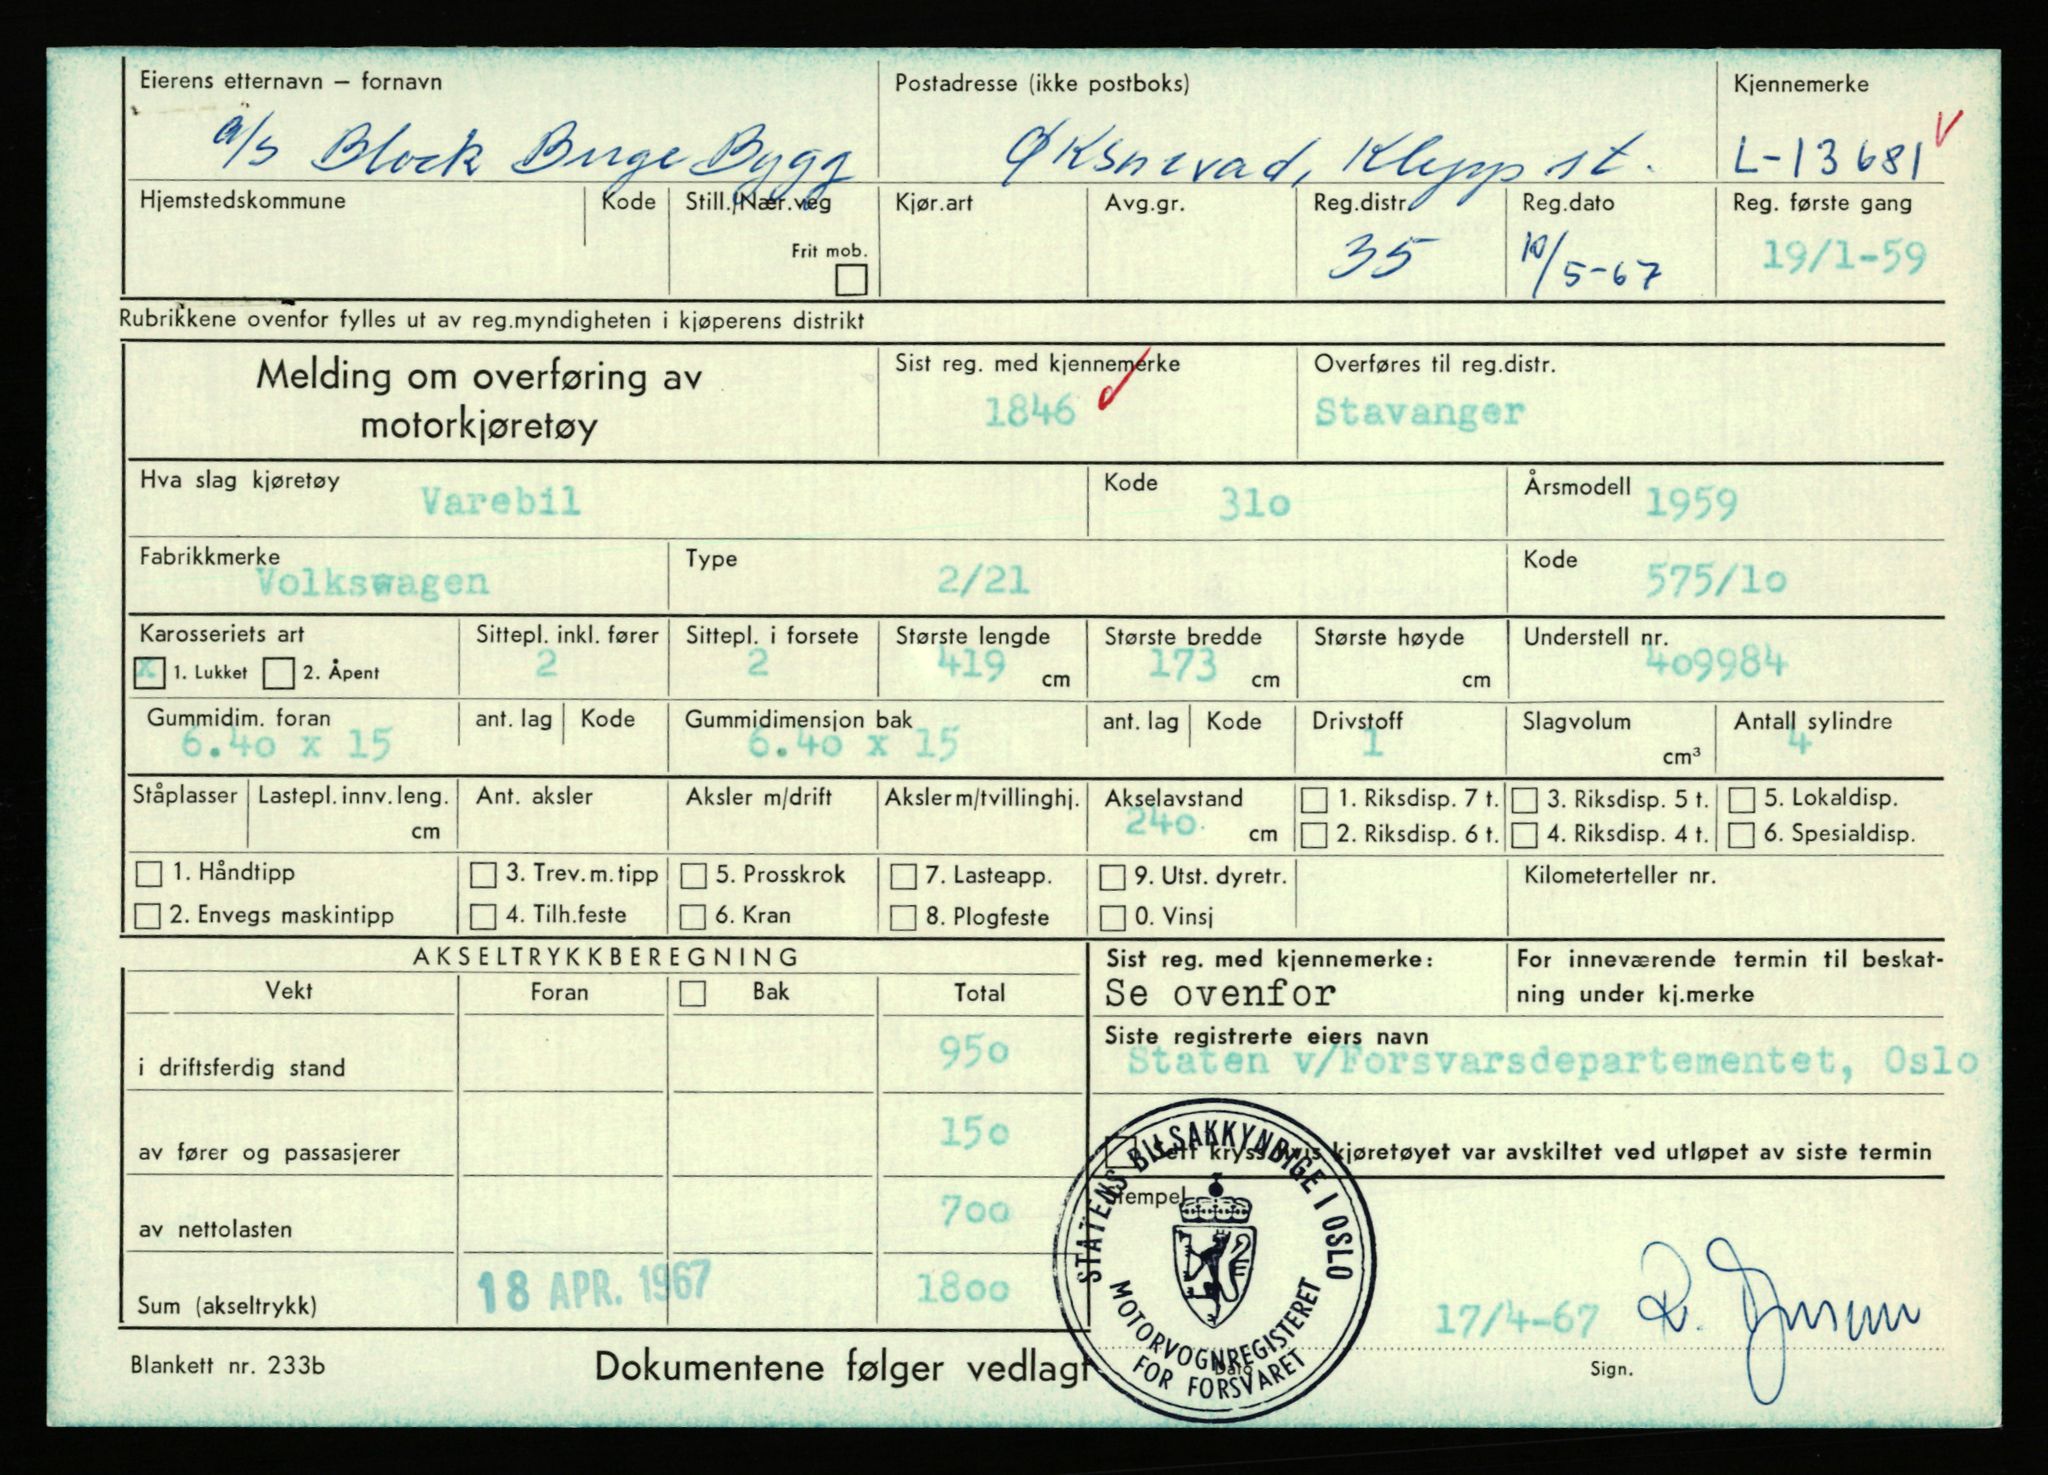 Eierens etternavn – fornavn Postadresse (ikke postboks) Kjennemerke
a/s Block Berge Bygg Øksnevad, Klepp st. L-13681
Hjemstedskommune Kode Still./Nær.veg Kjør.art Avg.gr. Reg.distr. Reg.dato Reg. første gang
Frit mob. 35 10/5-67 19/1-59
Rubrikkene ovenfor fylles ut av reg.myndigheten i kjøperens distrikt
Melding om overføring av Sist reg. med kjennemerke Overføres til reg.distr.
motorkjøretøy 1846 Stavanger
Hva slag kjøretøy Varebil Kode 31o Årsmodell 1959
Fabrikkmerke Volkswagen Type 2/21 Kode 575/1o
Karosseriets art Sittepl. inkl. fører Sittepl. i forsete Største lengde Største bredde Største høyde Understell nr.
x 1. Lukket 2. Åpent 2 2 419 cm 173 cm cm 4o9984
Gummidim. foran ant. lag Kode Gummidimensjon bak ant. lag Kode Drivstoff Slagvolum Antall sylindre
6.4o x 15 6.4o x 15 1 cm³ 4
Ståplasser Lastepl. innv. leng. Ant. aksler Aksler m/drift Aksler m/tvillinghj. Akselavstand 1. Riksdisp. 7 t. 3. Riksdisp. 5 t. 5. Lokaldisp.
cm 24o. cm 2. Riksdisp. 6 t. 4. Riksdisp. 4 t. 6. Spesialdisp.
1. Håndtipp 3. Trev. m. tipp 5. Prosskrok 7. Lasteapp. 9. Utst. dyretr. Kilometerteller nr.
2. Envegs maskintipp 4. Tilh.feste 6. Kran 8. Plogfeste 0. Vinsj
AKSELTRYKKBEREGNING Sist reg. med kjennemerke: For inneværende termin til beskat-
Vekt Foran Bak Total Se ovenfor ning under kj.merke
Siste registrerte eiers navn
i driftsferdig stand 95o Staten v/Forsvarsdepartementet, Oslo
av fører og passasjerer 15o Sett kryss hvis kjøretøyet var avskiltet ved utløpet av siste termin
Stempel
av nettolasten 7oo
STATENS BILSAKKYNDIGE I OSLO
MOTORVOGNREGISTERET
FOR FORSVARET
Sum (akseltrykk) 18 APR. 1967 18oo 17/4-67
Blankett nr. 233b Dokumentene følger vedlagt Dato Sign.